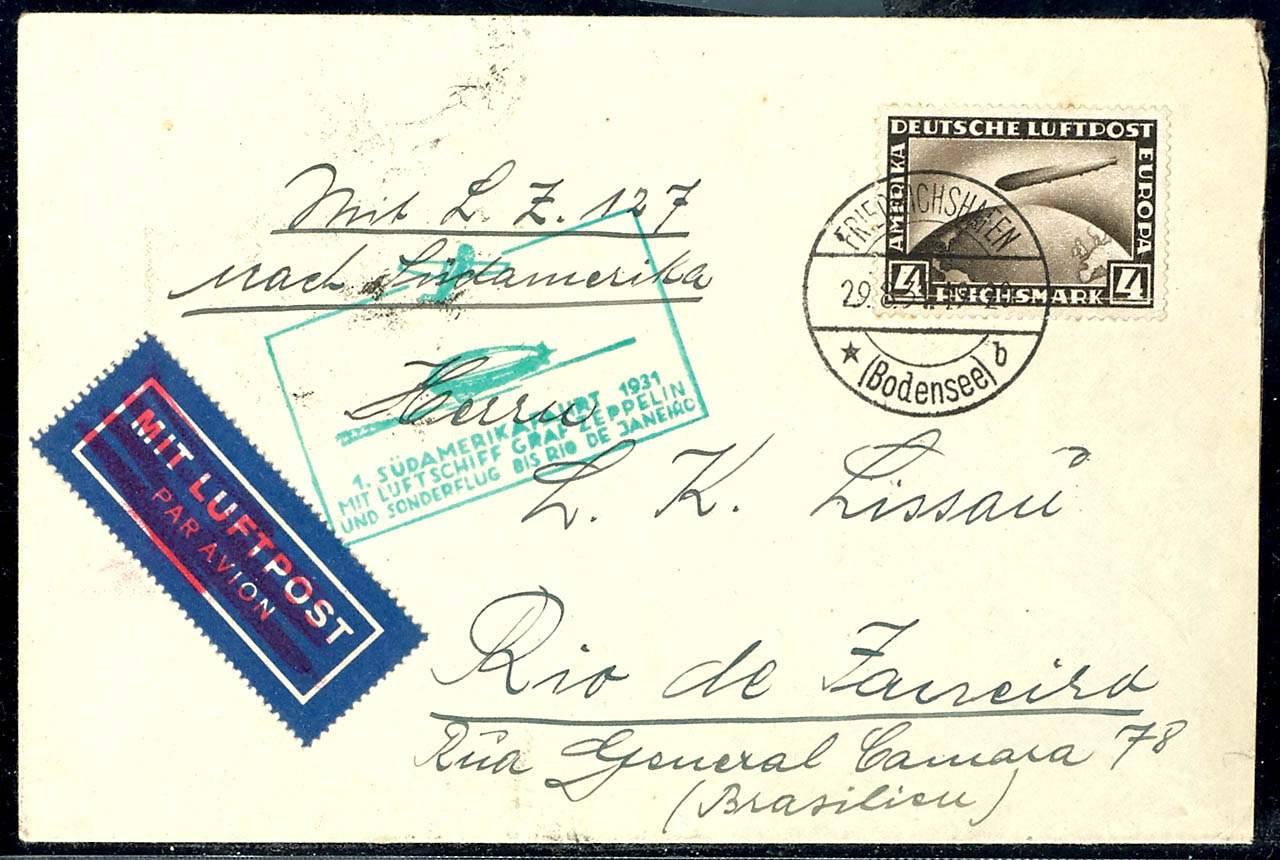 DEUTSCHE LUFTPOST
AMERIKA
EUROPA
4 REICHSMARK 4
FRIEDRICHSHAFEN
29.8.31.19-20
(Bodensee) b
Mit L. Z. 127
nach Südamerika
1. SÜDAMERIKAFAHRT 1931
MIT LUFTSCHIFF GRAF ZEPPELIN
UND SONDERFLUG BIS RIO DE JANEIRO
MIT LUFTPOST
PAR AVION
Herrn
L. K. Lissau
Rio de Janeiro
Rua General Camara 78
(Brasilien)